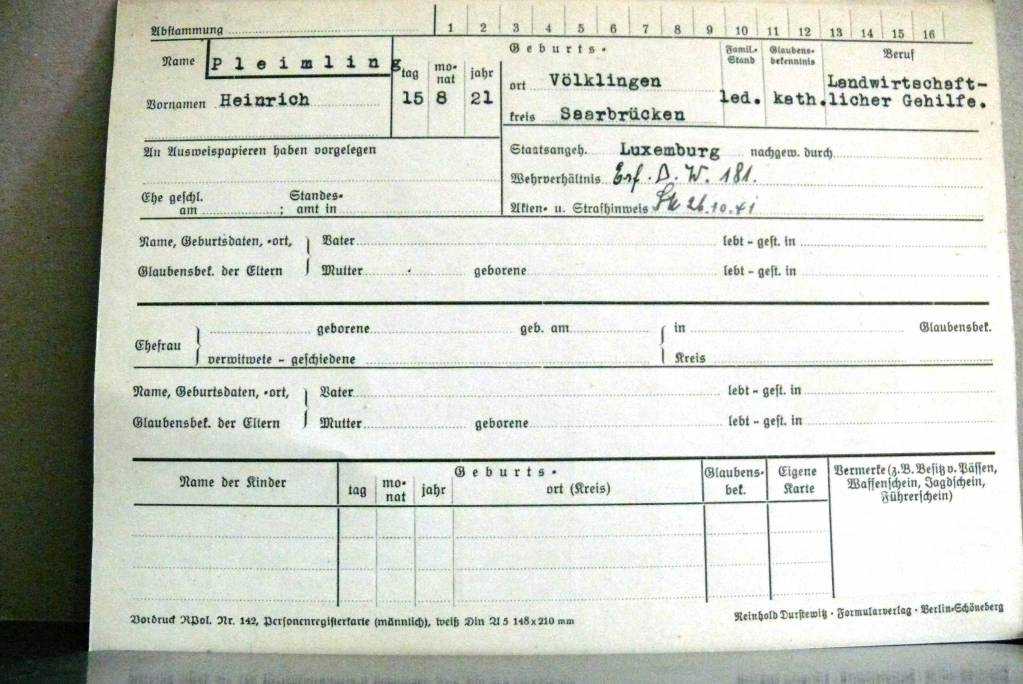 Abstammung 1 2 3 4 5 6 7 8 9 10 11 12 13 14 15 16
Name Pleimling
Vornamen Heinrich
tag monat jahr
15 8 21
Geburts-
ort Völklingen
kreis Saarbrücken
Famil.-Stand
led.
Glaubensbekenntnis
kath.
Beruf
Landwirtschaft-
licher Gehilfe.
An Ausweispapieren haben vorgelegen
Ehe geschl. Standes-
am ; amt in
Staatsangeh. Luxemburg nachgew. durch
Wehrverhältnis Erf. D. W. 181.
Akten- u. Strafhinweis 26.10.41
Name, Geburtsdaten, -ort, Vater lebt - gest. in
Glaubensbek. der Eltern Mutter geborene lebt - gest. in
Ehefrau geborene geb. am in Glaubensbek.
verwitwete - geschiedene Kreis
Name, Geburtsdaten, -ort, Vater lebt - gest. in
Glaubensbek. der Eltern Mutter geborene lebt - gest. in
Name der Kinder
Geburts-
tag monat jahr ort (Kreis)
Glaubens-
bek.
Eigene
Karte
Vermerke (z. B. Besitz v. Pässen,
Waffenschein, Jagdschein,
Führerschein)
Vordruck RPol. Nr. 142, Personenregisterkarte (männlich), weiß Din A 5 148 x 210 mm
Reinhold Durstewitz · Formularverlag · Berlin-Schöneberg